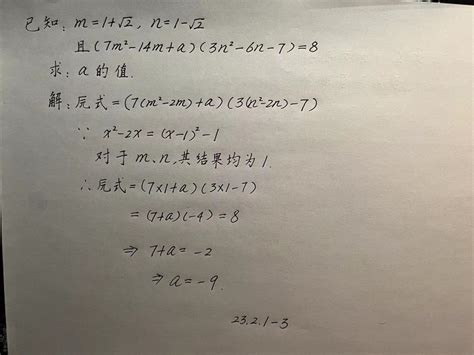 已知: m=1+√2, n=1-√2
且(7m²-14m+a)(3n²-6n-7)=8
求: a的值.
解: 原式=(7(m²-2m)+a)(3(n²-2n)-7)
∵ x²-2x=(x-1)²-1
对于m、n,其结果均为1.
∴原式=(7×1+a)(3×1-7)
=(7+a)(-4)=8
⇒ 7+a=-2
⇒ a=-9.
23.2.1-3